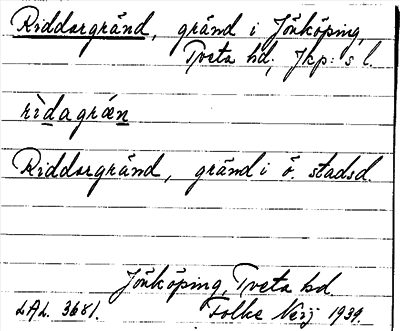 Riddargränd, gränd i Jönköping,
Tveta hd, Jkp: s l.
ridagræn
Riddargränd, gränd i ö. stadsd.
Jönköping, Tveta hd
LAL. 3681. Folke 1939.